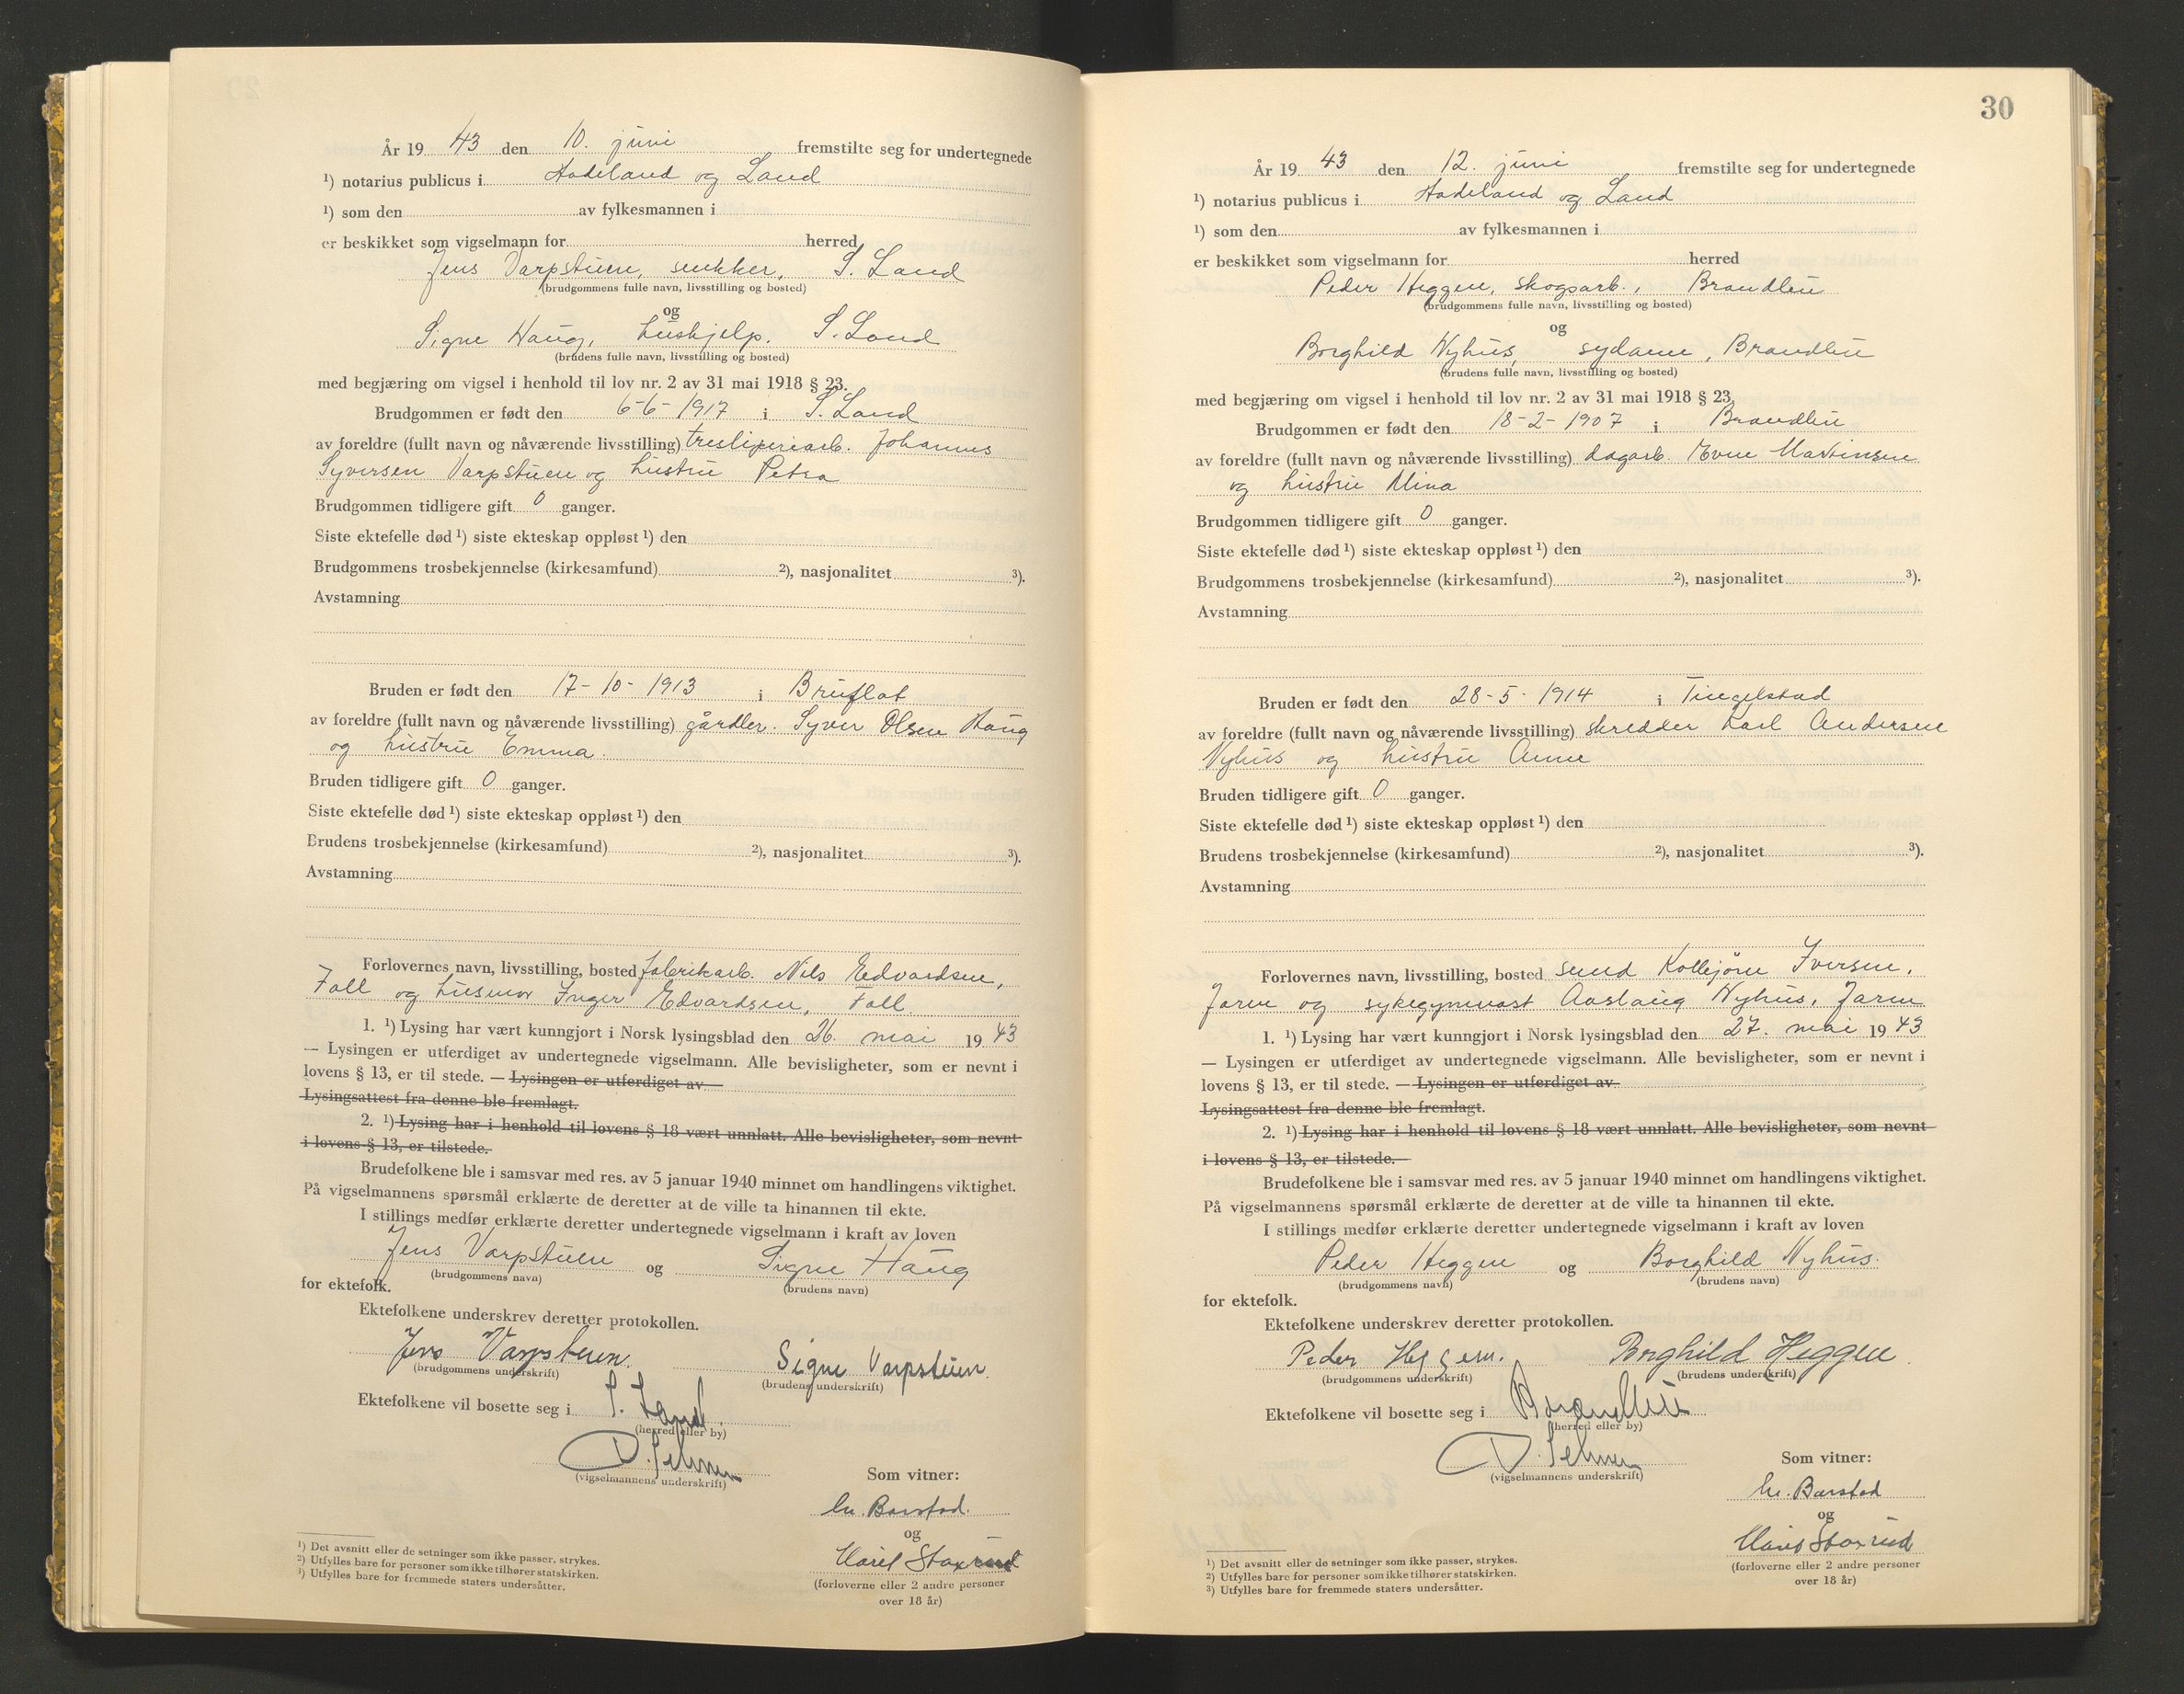 År 19 43 den 10. juni fremstilte seg for undertegnede
¹) notarius publicus i Hadeland og Land
¹) som den av fylkesmannen i
er beskikket som vigselmann for herred
Jens Varpstuen, snekker, S. Land
(brudgommens fulle navn, livsstilling og bosted)
og
Signe Haug, hushjelp. S. Land
(brudens fulle navn, livsstilling og bosted)
med begjæring om vigsel i henhold til lov nr. 2 av 31 mai 1918 § 23.
Brudgommen er født den 6-6-1917 i S. Land
av foreldre (fullt navn og nåværende livsstilling) tresliperiarb. Johannes
Syversen Varpstuen og hustru Petra
Brudgommen tidligere gift 0 ganger.
Siste ektefelle død ¹) siste ekteskap oppløst ¹) den
Brudgommens trosbekjennelse (kirkesamfund) ²), nasjonalitet ³).
Avstamning
Bruden er født den 17-10-1913 i Bruflat
av foreldre (fullt navn og nåværende livsstilling) gårdbr. Syver Olsen Haug
og hustru Emma.
Bruden tidligere gift 0 ganger.
Siste ektefelle død ¹) siste ekteskap oppløst ¹) den
Brudens trosbekjennelse (kirkesamfund) ²), nasjonalitet ³).
Avstamning
Forlovernes navn, livsstilling, bosted fabrikarb. Nils Edvardsen,
Fall og husmor Inger Edvardsen, Fall.
1. ¹) Lysing har vært kunngjort i Norsk lysingsblad den 26. mai 19 43
— Lysingen er utferdiget av undertegnede vigselmann. Alle bevisligheter, som er nevnt i
lovens § 13, er til stede. — Lysingen er utferdiget av
Lysingsattest fra denne ble fremlagt.
2. ¹) Lysing har i henhold til lovens § 18 vært unnlatt. Alle bevisligheter, som nevnt
i lovens § 13, er tilstede.
Brudefolkene ble i samsvar med res. av 5 januar 1940 minnet om handlingens viktighet.
På vigselmannens spørsmål erklærte de deretter at de ville ta hinannen til ekte.
I stillings medfør erklærte deretter undertegnede vigselmann i kraft av loven
Jens Varpstuen og Signe Haug
(brudgommens navn) (brudens navn)
for ektefolk.
Ektefolkene underskrev deretter protokollen.
Jens Varpstuen. Signe Varpstuen.
(brudgommens underskrift) (brudens underskrift)
Ektefolkene vil bosette seg i S. Land.
(herred eller by)
(vigselmannens underskrift)
Som vitner:
Barstad.
og
Staxrud
(forloverne eller 2 andre personer
over 18 år)
¹) Det avsnitt eller de setninger som ikke passer, strykes.
²) Utfylles bare for personer som ikke tilhører statskirken.
³) Utfylles bare for fremmede staters undersåtter.
30
År 19 43 den 12. juni fremstilte seg for undertegnede
¹) notarius publicus i Hadeland og Land
¹) som den av fylkesmannen i
er beskikket som vigselmann for herred
Peder Heggen, skogsarb., Brandbu
(brudgommens fulle navn, livsstilling og bosted)
og
Borghild Nyhus, sydame, Brandbu
(brudens fulle navn, livsstilling og bosted)
med begjæring om vigsel i henhold til lov nr. 2 av 31 mai 1918 § 23.
Brudgommen er født den 18-2-1907 i Brandbu
av foreldre (fullt navn og nåværende livsstilling) dagarb. Martinsen
og hustru Mina
Brudgommen tidligere gift 0 ganger.
Siste ektefelle død ¹) siste ekteskap oppløst ¹) den
Brudgommens trosbekjennelse (kirkesamfund) ²), nasjonalitet ³).
Avstamning
Bruden er født den 28-5-1914 i Tingelstad
av foreldre (fullt navn og nåværende livsstilling) skredder Karl Andersen
Nyhus og hustru Anne
Bruden tidligere gift 0 ganger.
Siste ektefelle død ¹) siste ekteskap oppløst ¹) den
Brudens trosbekjennelse (kirkesamfund) ²), nasjonalitet ³).
Avstamning
Forlovernes navn, livsstilling, bosted smed Kolbjørn Iversen,
Jaren og sykegymnast Aaslaug Nyhus, Jaren
1. ¹) Lysing har vært kunngjort i Norsk lysingsblad den 27. mai 19 43
— Lysingen er utferdiget av undertegnede vigselmann. Alle bevisligheter, som er nevnt i
lovens § 13, er til stede. — Lysingen er utferdiget av
Lysingsattest fra denne ble fremlagt.
2. ¹) Lysing har i henhold til lovens § 18 vært unnlatt. Alle bevisligheter, som nevnt
i lovens § 13, er tilstede. —
Brudefolkene ble i samsvar med res. av 5 januar 1940 minnet om handlingens viktighet.
På vigselmannens spørsmål erklærte de deretter at de ville ta hinannen til ekte.
I stillings medfør erklærte deretter undertegnede vigselmann i kraft av loven
Peder Heggen og Borghild Nyhus.
(brudgommens navn) (brudens navn)
for ektefolk.
Ektefolkene underskrev deretter protokollen.
Peder Heggen. Borghild Heggen.
(brudgommens underskrift) (brudens underskrift)
Ektefolkene vil bosette seg i Brandbu
(herred eller by)
(vigselmannens underskrift)
Som vitner:
Barstad
og
Staxrud
(forloverne eller 2 andre personer
over 18 år)
¹) Det avsnitt eller de setninger som ikke passer, strykes.
²) Utfylles bare for personer som ikke tilhører statskirken.
³) Utfylles bare for fremmede staters undersåtter.